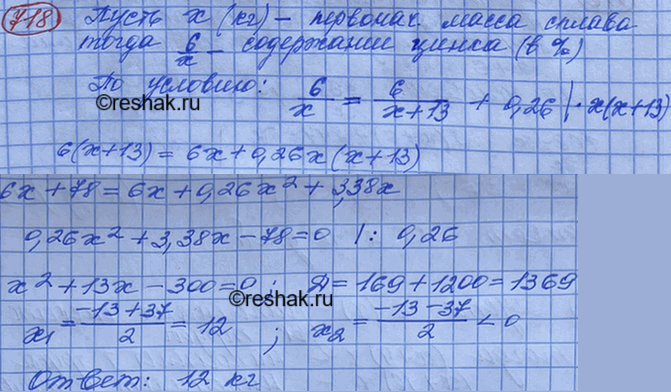 718 Пусть x (кг) – первонач масса сплава
тогда 6/x – содержании цинка (в %)
По условию: 6/x = 6/(x+13) + 0,26 |· x(x+13)
©reshak.ru
6(x+13) = 6x + 0,26x(x+13)
6x + 78 = 6x + 0,26x² + 3,38x
0,26x² + 3,38x – 78 = 0 |: 0,26
x² + 13x – 300 = 0 ; Д = 169 + 1200 = 1369
©reshak.ru
x₁ = (–13 + 37)/2 = 12 ; x₂ = (–13 – 37)/2 < 0
Ответ: 12 кг